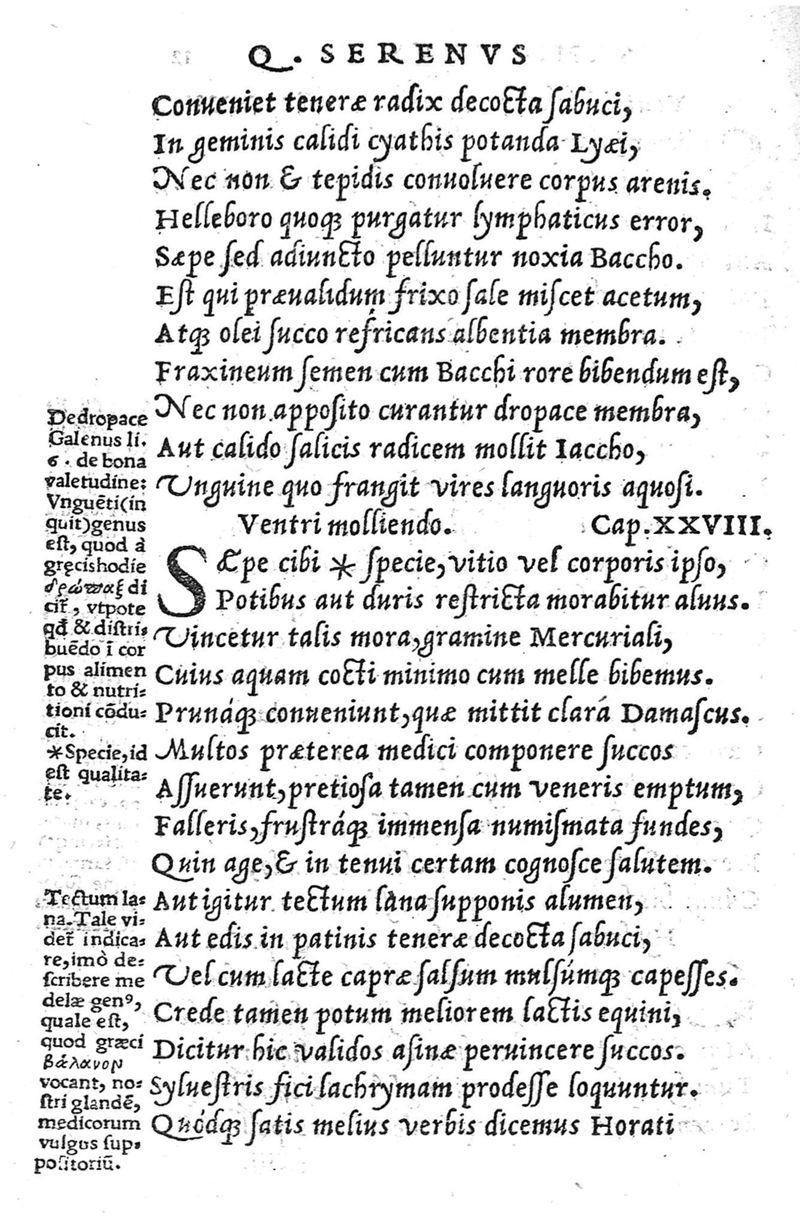 Q. SERENVS
Conueniet teneræ radix decocta sabuci,
In geminis calidi cyathis potanda Lyæi,
Nec non & tepidis conuoluere corpus arenis.
Helleboro quoqꝫ purgatur lymphaticus error,
Sæpe sed adiuncto pelluntur noxia Baccho.
Est qui præualidum frixo sale miscet acetum,
Atqꝫ olei succo refricans albentia membra.
Fraxineum semen cum Bacchi rore bibendum est,
Nec non apposito curantur dropace membra,
Aut calido salicis radicem mollit Iaccho,
Vnguine quo frangit vires languoris aquosi.
Ventri molliendo. Cap.XXVIII.
SÆpe cibi * specie, vitio vel corporis ipso,
Potibus aut duris restricta morabitur aluus.
Vincetur talis mora, gramine Mercuriali,
Cuius aquam cocti minimo cum melle bibemus.
Prunáqꝫ conueniunt, quæ mittit clará Damascus.
Multos præterea medici componere succos
Assuerunt, pretiosa tamen cum veneris emptum,
Falleris, frustráqꝫ immensa numismata fundes,
Quin age, & in tenui certam cognosce salutem.
Aut igitur tectum lana supponis alumen,
Aut edis in patinis teneræ decocta sabuci,
Vel cum lacte capræ salsum mulsúmqꝫ capesses.
Crede tamen potum meliorem lactis equini,
Dicitur hic validos asinæ peruincere succos.
Syluestris fici lachrymam prodesse loquuntur.
Quódqꝫ satis melius verbis dicemus Horati
De dropace
Galenus li.
6. de bona
valetudine:
Vnguẽti(in
quit)genus
est, quod à
gręcis hodie
δρώπαξ di
cit̃, vtpote
qđ & distri=
buẽdo ĩ cor
pus alimen
to & nutri=
tioni cõdu=
cit.
*Specie, id
est qualita=
te.
Tectum la=
na. Tale vi=
det̃ indica=
re, imò de=
scribere me
delæ genꝰ,
quale est,
quod græci
βάλανον
vocant, no=
stri glandẽ,
medicorum
vulgus sup=
positoriũ.